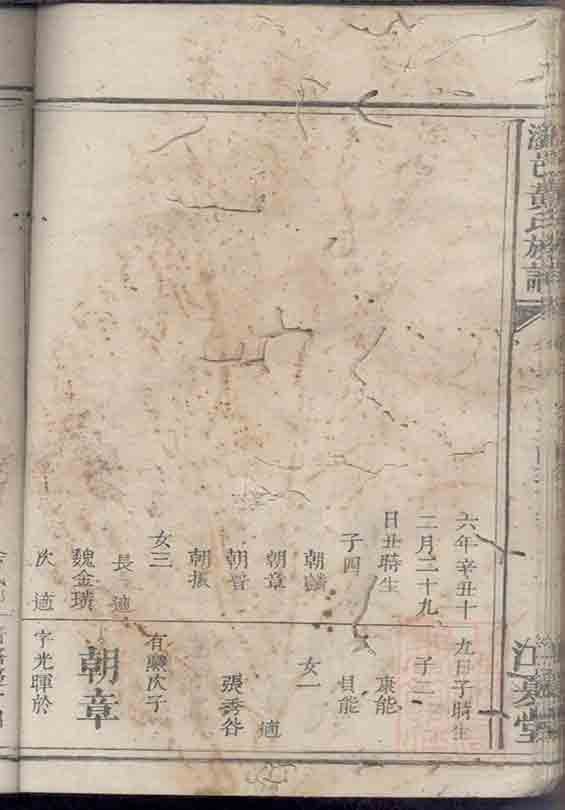 邑黃氏族譜
六年辛丑十
二月二十九
日丑時生
子四
朝麟
朝章
朝晉
朝振
女三
長適
魏金璜
次適
九日子時生
子二
康能
貝能
女一
適
張秀谷
有驥次子
朝章
字光暉於
江夏堂